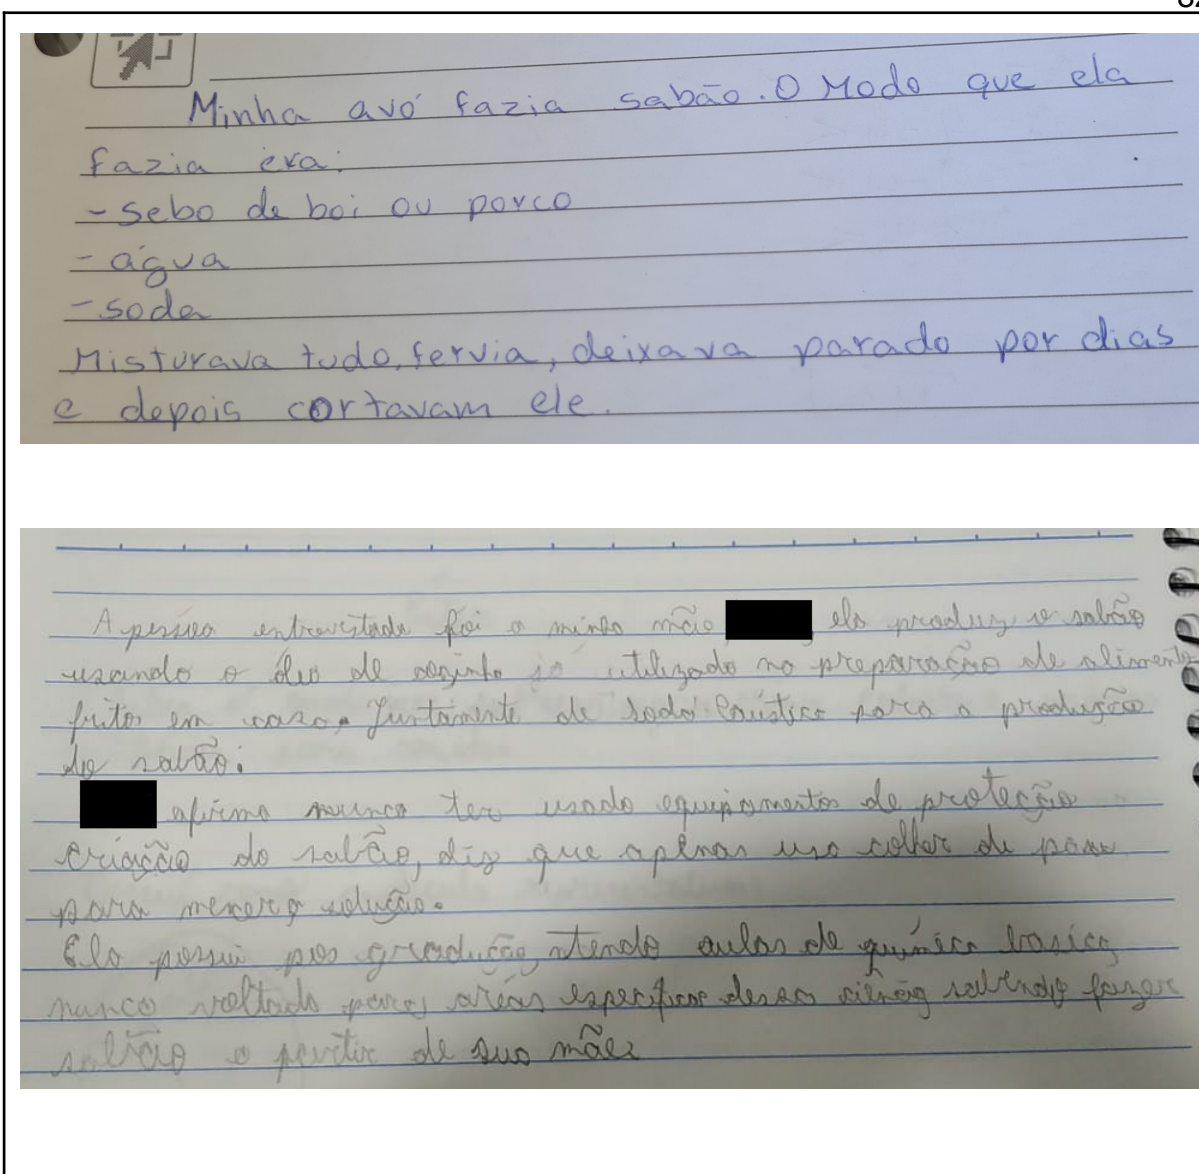 Minha avó fazia sabão. O Modo que ela
fazia era:
- sebo de boi ou porco
- água
- soda
Misturava tudo, fervia, deixava parado por dias
e depois cortavam ele.
A pessoa entrevistada foi a minha mãe ela produz o sabão
usando o óleo de cozinha já utilizado no preparação de alimentos
fritos em casa, Juntamente de soda caústica para a produção
do sabão.
afirma nunca ter usado equipamentos de proteção
criação do sabão, diz que apenas usa colher de pau
para mexer a solução.
Ela possui pós gradução, tendo aulas de química basica
nunca voltado para areas especificas dessa ciência sabendo fazer
sabão a partir de sua mãe.